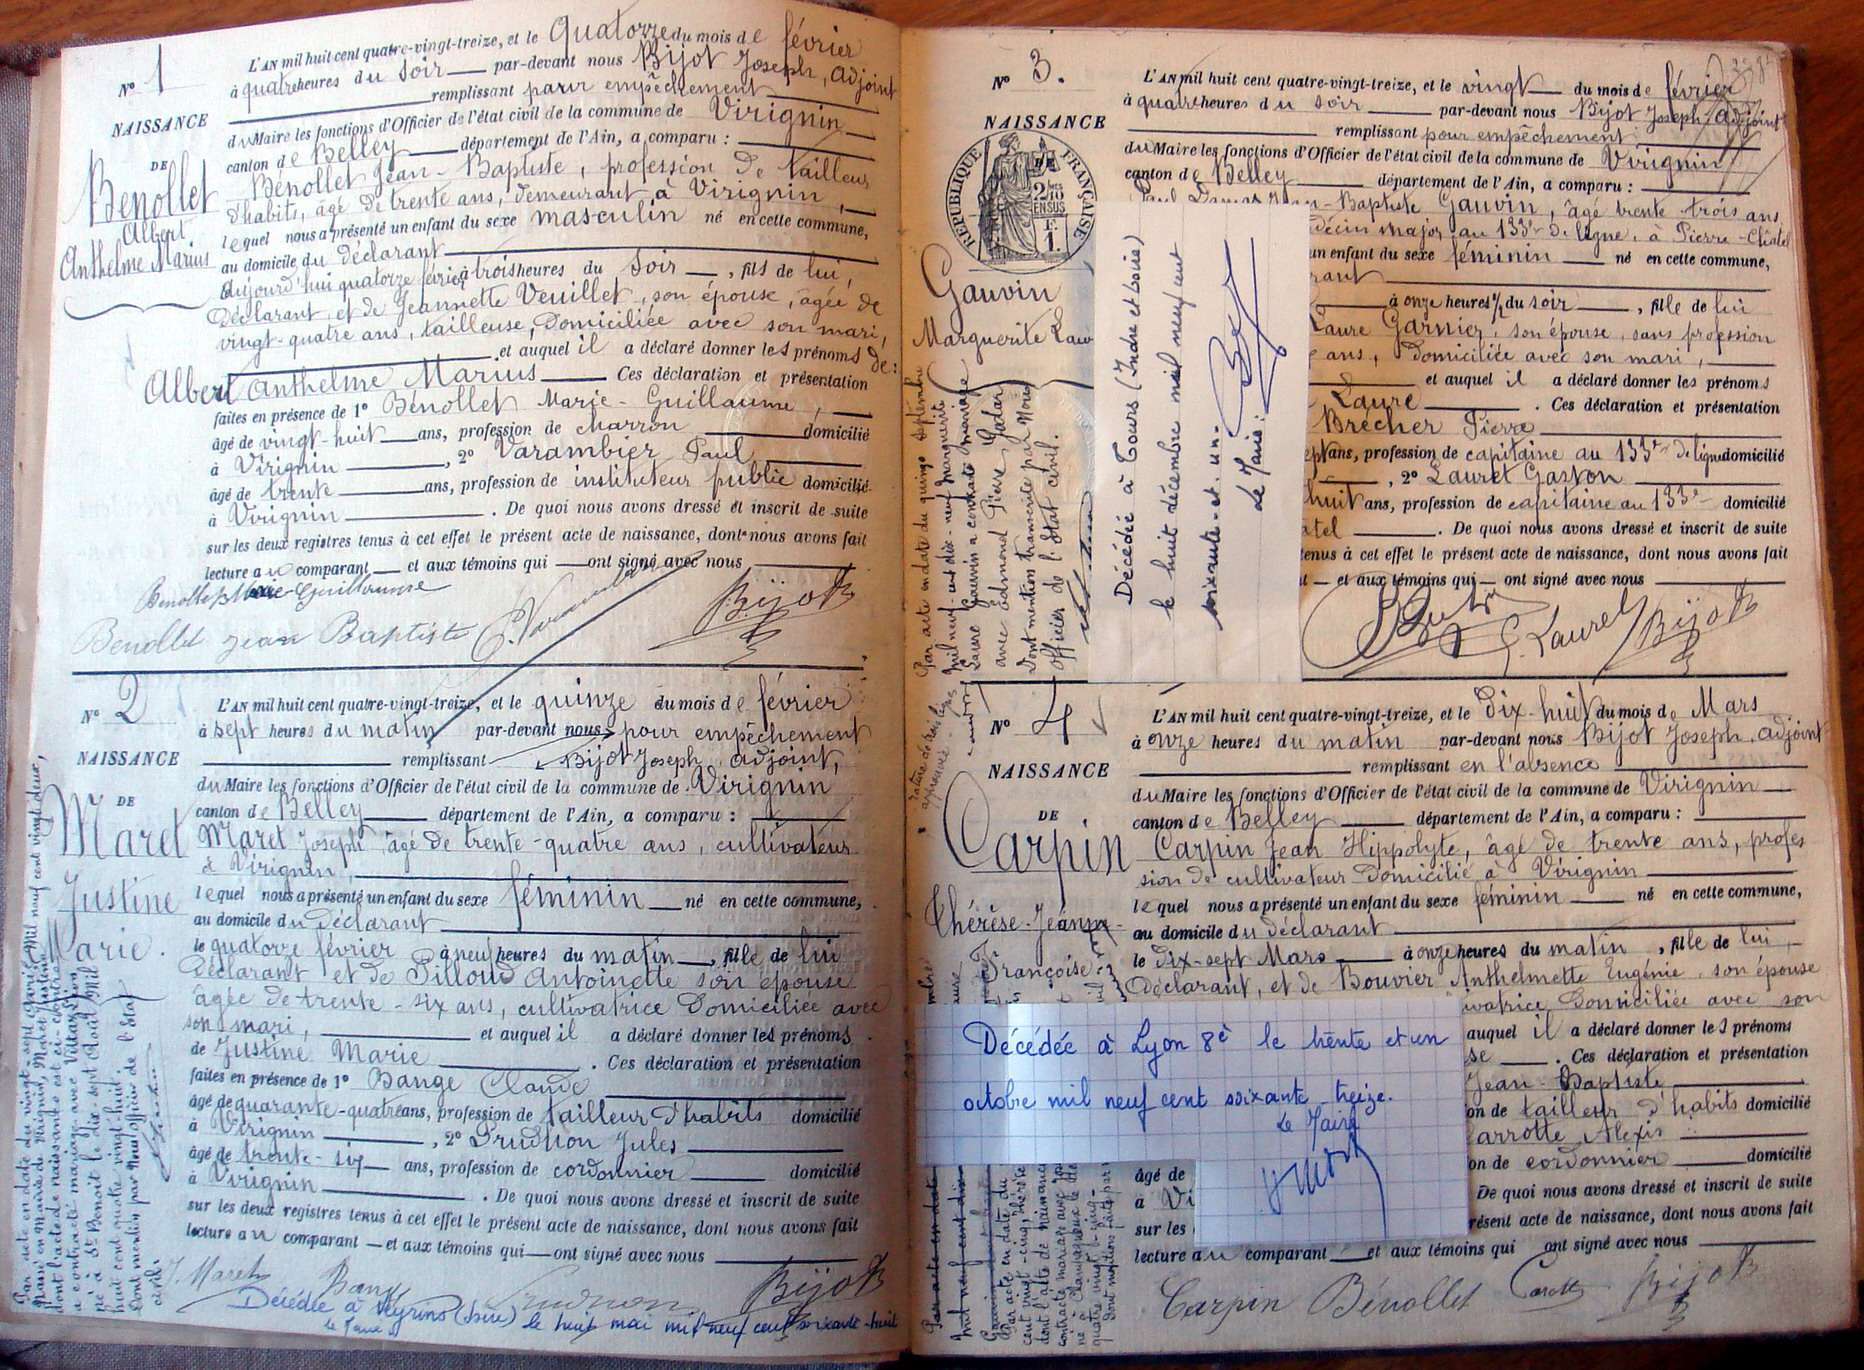 N° 1
NAISSANCE
DE
Benollet
Albert
Anthelme Marius
L'AN mil huit cent quatre-vingt-treize, et le quatorze du mois de février
à quatre heures du soir par-devant nous Bijot Joseph, adjoint
remplissant pour empêchement
du Maire les fonctions d'Officier de l'état civil de la commune de Virignin
canton de Belley département de l'Ain, a comparu :
Bénollet Jean-Baptiste, profession de tailleur
d'habits, âgé de trente ans, demeurant à Virignin,
lequel nous a présenté un enfant du sexe masculin né en cette commune,
au domicile du déclarant
aujourd'hui quatorze février à trois heures du soir, fils de lui,
déclarant et de Jeannette Veuillet, son épouse, âgée de
vingt-quatre ans, tailleuse, domiciliée avec son mari,
et auquel il a déclaré donner les prénoms de:
Albert Anthelme Marius Ces déclaration et présentation
faites en présence de 1° Bénollet Marie-Guillaume,
âgé de vingt-huit ans, profession de charron domicilié
à Virignin, 2° Varambier Paul
âgé de trente ans, profession de instituteur public domicilié
à Virignin. De quoi nous avons dressé et inscrit de suite
sur les deux registres tenus à cet effet le présent acte de naissance, dont nous avons fait
lecture au comparant et aux témoins qui ont signé avec nous
Benollet Marie-Guillaume
Benollet Jean Baptiste
Bijot
N° 2
NAISSANCE
DE
Maret
Justine
Marie.
L'AN mil huit cent quatre-vingt-treize, et le quinze du mois de février
à sept heures du matin par-devant nous pour empêchement
remplissant Bijot Joseph, adjoint,
du Maire les fonctions d'Officier de l'état civil de la commune de Virignin
canton de Belley département de l'Ain, a comparu :
Maret Joseph, âgé de trente-quatre ans, cultivateur
à Virignin,
lequel nous a présenté un enfant du sexe féminin né en cette commune,
au domicile du déclarant
le quatorze février à neuf heures du matin, fille de lui
déclarant et de Pilloud Antoinette son épouse
âgée de trente-six ans, cultivatrice domiciliée avec
son mari, et auquel il a déclaré donner les prénoms
de Justine Marie. Ces déclaration et présentation
faites en présence de 1° Bange Claude
âgé de quarante-quatre ans, profession de tailleur d'habits domicilié
à Virignin, 2° Prudhon Jules
âgé de trente-six ans, profession de cordonnier domicilié
à Virignin. De quoi nous avons dressé et inscrit de suite
sur les deux registres tenus à cet effet le présent acte de naissance, dont nous avons fait
lecture au comparant et aux témoins qui ont signé avec nous
J. Maret Bange Prudhon Bijot
Décédée à Veyrins (Isère) le huit mai mil neuf cent soixante-huit
le Maire
Par acte en date du vingt sept Mars Mil neuf cent vingt deux,
N° 3.
NAISSANCE
DE
RÉPUBLIQUE FRANÇAISE
Gauvin
Marguerite Lau
L'AN mil huit cent quatre-vingt-treize, et le vingt du mois de février
à quatre heures du soir par-devant nous Bijot Joseph adjoint
remplissant pour empêchement
du Maire les fonctions d'Officier de l'état civil de la commune de Virignin
canton de Belley département de l'Ain, a comparu :
Jean-Baptiste Gauvin, âgé trente trois ans
médecin major au 133e de ligne, à Pierre-Châtel
un enfant du sexe féminin né en cette commune,
rant
à onze heures ½ du soir, fille de lui
Laure Garnier, son épouse, sans profession
ans, domiciliée avec son mari,
et auquel il a déclaré donner les prénoms
Laure. Ces déclaration et présentation
Brecher Pierre
ept ans, profession de capitaine au 133e de ligne domicilié
, 2° Lauret Gaston
huit ans, profession de capitaine au 133e domicilié
atel. De quoi nous avons dressé et inscrit de suite
tenus à cet effet le présent acte de naissance, dont nous avons fait
et aux témoins qui ont signé avec nous
G. Lauret Bijot
Par acte en date du quinze septembre
mil neuf cent dix-neuf Marguerite
Laure Gauvin a contracté mariage
avec Edmond Pierre Gadar
Dont mention transcrite par Nous
Officier de l'Etat civil.
Décédé à Tours (Indre et Loire)
le huit décembre mil neuf cent
soixante-et-un.
Le Maire:
N° 4
NAISSANCE
DE
Carpin
Thérèse-Jeanne
Françoise
L'AN mil huit cent quatre-vingt-treize, et le dix-huit du mois de Mars
à onze heures du matin par-devant nous Bijot Joseph, adjoint
remplissant en l'absence
du Maire les fonctions d'Officier de l'état civil de la commune de Virignin
canton de Belley département de l'Ain, a comparu :
Carpin Jean Hippolyte, âgé de trente ans, profes
sion de cultivateur domicilié à Virignin
lequel nous a présenté un enfant du sexe féminin né en cette commune,
au domicile du déclarant
le dix-sept Mars à onze heures du matin, fille de lui
déclarant, et de Bouvier Anthelmette Eugénie son épouse
ivatrice domiciliée avec son
auquel il a déclaré donner les prénoms
se. Ces déclaration et présentation
Jean-Baptiste
on de tailleur d'habits domicilié
arrotte Alexis
âgé de on de cordonnier domicilié
à Vi De quoi nous avons dressé et inscrit de suite
sur les résent acte de naissance, dont nous avons fait
lecture au comparant et aux témoins qui ont signé avec nous
Carpin Bénollet Bijot
Décédée à Lyon 8è le trente et un
octobre mil neuf cent soixante-treize.
Le Maire